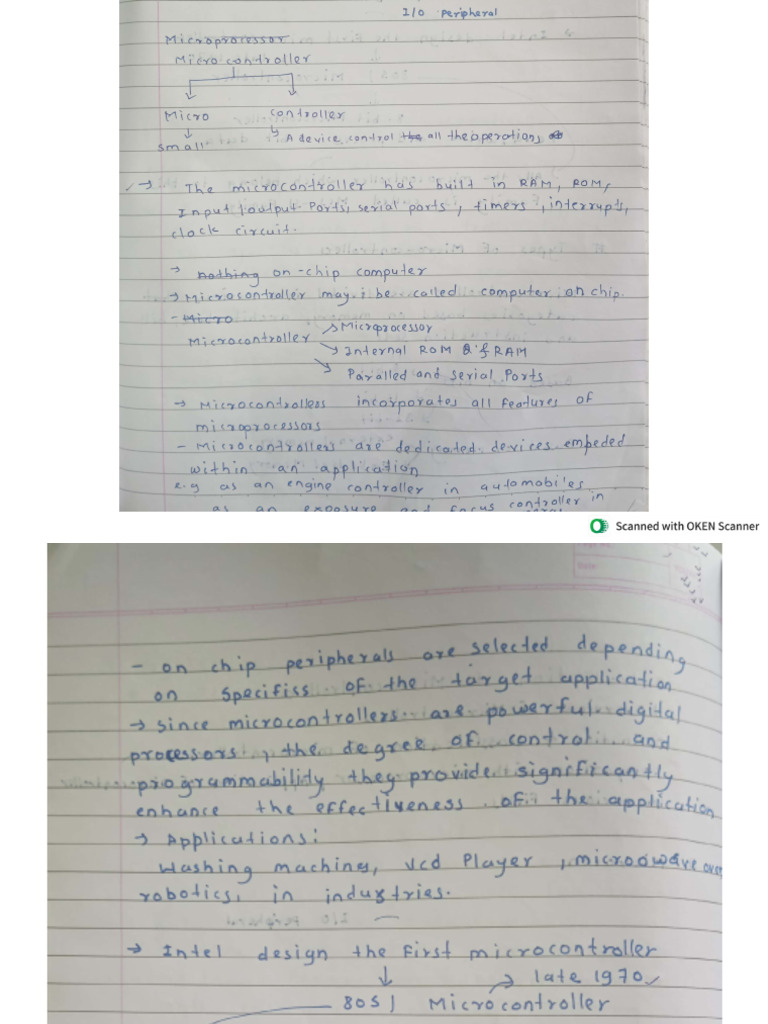 I/O Peripheral
Microprocessor
Microcontroller
Micro controller
small A device control the all the operations
→ The microcontroller has built in RAM, ROM,
Input/output Ports, serial ports, timers, interrupts,
clock circuit.
→ nothing on-chip computer
→ Microcontroller may be called computer on chip.
- Micro
Microprocessor
Microcontroller
Internal ROM & RAM
Paralled and serial Ports
→ Microcontrollers incorporates all features of
microprocessors
- Microcontrollers are dedicated devices empeded
within an application
e.g as an engine controller in automobiles
as an exposure and focus controller in
Scanned with OKEN Scanner
Date
- on chip peripherals are selected depending
on specifiss of the target application
→ since microcontrollers are powerful digital
processors, the degree of control and
programmability they provide significantly
enhance the effectiveness of the application
→ Applications:
Washing machine, vcd Player,
robotics, in industries.
→ Intel design the first microcontroller
→ late 1970
8051 Microcontroller